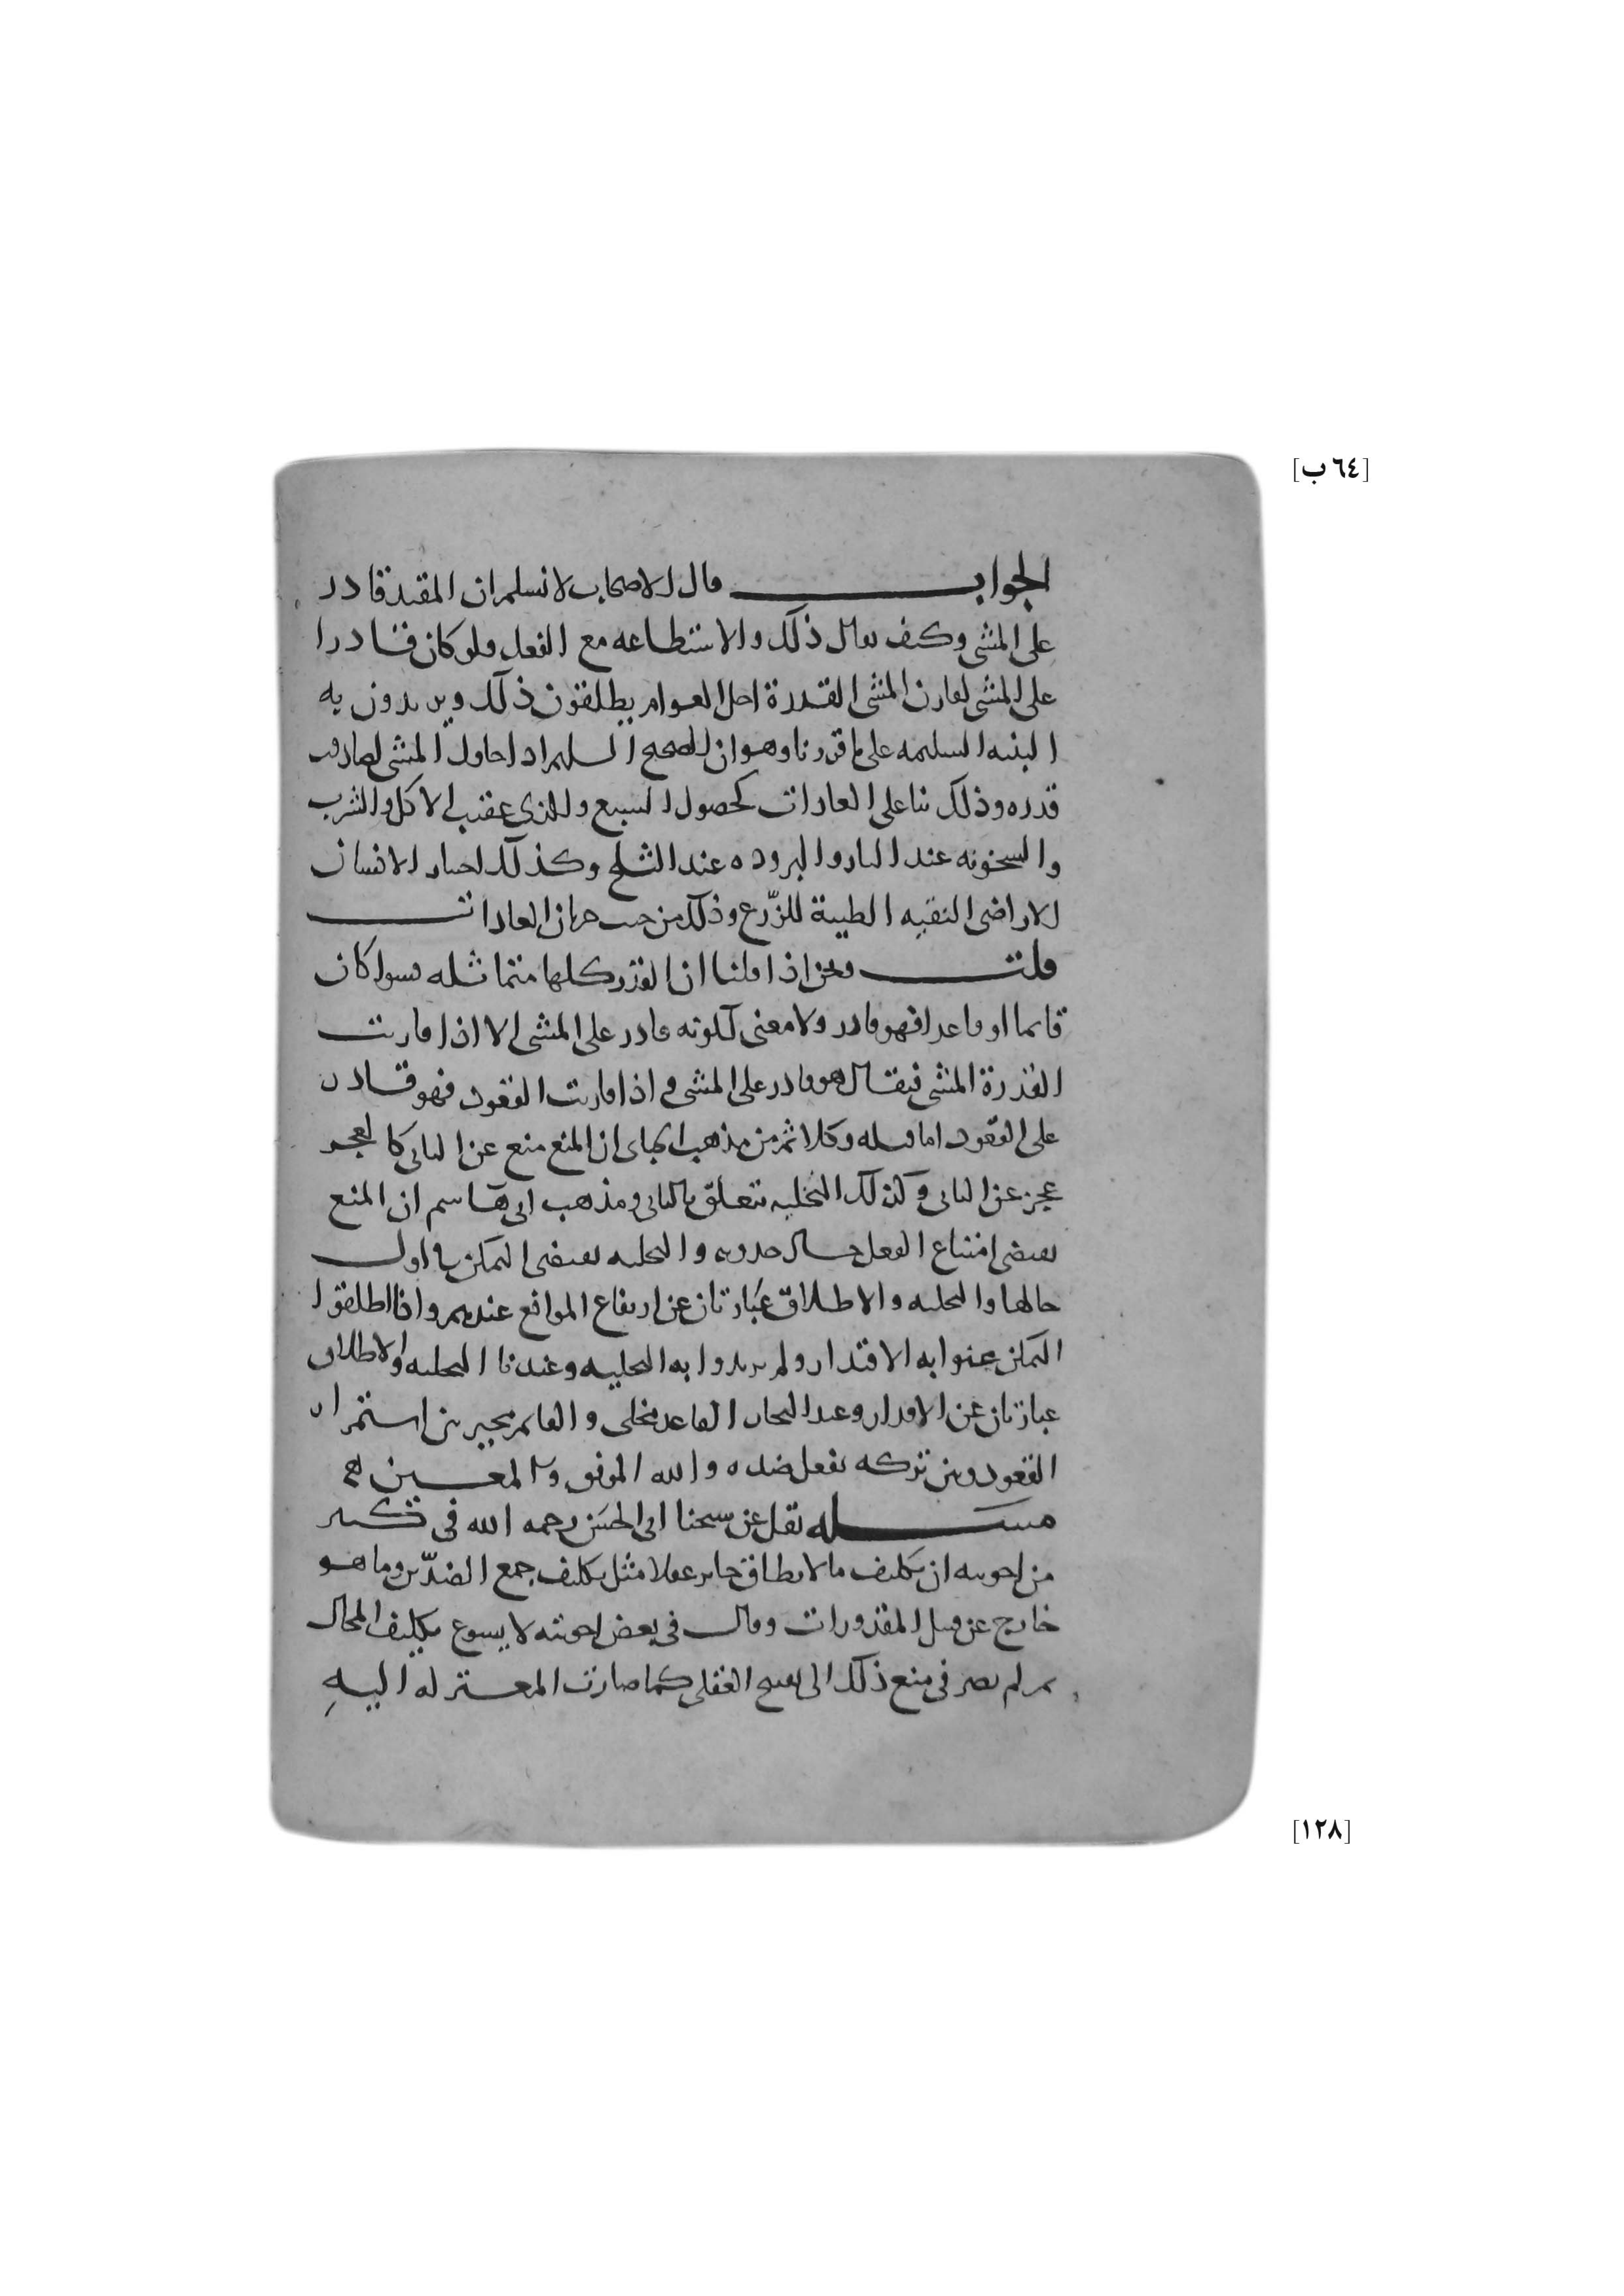 [٦٤ ب]
الجواب قال الاصحاب لا نسلم ان المقيد قادر
على المشي وكيف يقال ذلك والاستطاعه مع الفعل ولو كان قادرا
على المشي لقارن المشي القدرة اجل العوام يطلقون ذلك ويريدون به
البنيه السليمه على ما قررنا وهو ان الصحيح السليم اذا حاول المشي لصادف
قدره وذلك بنا على العادات كحصول الشبع والرى عقيب الاكل والشرب
والسخونه عند النار والبروده عند الثلج وكذلك اختيار الانسان
الاراضى النقيه الطيبة للزّرع وذلك من حيث جريان العادات
قلت ونحن اذا قلنا ان القدر كلها متماثله فسوا كان
قايما او قاعدا فهو قادر ولا معنى لكونه قادر على المشي الا اذا قارنت
القدرة المشي فيقال هو قادر على المشي واذا قارنت القعود فهو قادر
على القعود اما قبله فكلا ثم من مذهب الجباى ان المنع منع عن الثانى كالعجز
عجز عن الثانى وكذلك التخليه تتعلق بالثانى ومذهب ابى هاشم ان المنع
يقتضى امتناع الفعل حال حدوثه والتخليه تقتضى التمكن في اول
حالها والتخليه والاطلاق عبارتان عن ارتفاع الموانع عندهم واذا اطلقوا
التمكن عنوا به الاقتدار ولم يريدوا به التخليه وعندنا التخليه والاطلاق
عبارتان عن الاقدار وعند النجار القاعد مخلى والقايم مخير بين استمرار
القعود وبين تركه بفعل ضده والله الموفق والمعين
مسله نقل عن شيخنا ابى الحسن رحمه الله فى كثير
من اجوبته ان تكليف ما لا يطاق جايز عقلا مثل تكليف جمع الضدّين وما هو
خارج عن قبيل المقدورات وقال فى بعض اجوبته لا يسوغ تكليف المحال
ثم لم يصر فى منع ذلك الى تقبيح العقلى كما صارت المعتزله اليه
[١٢٨]